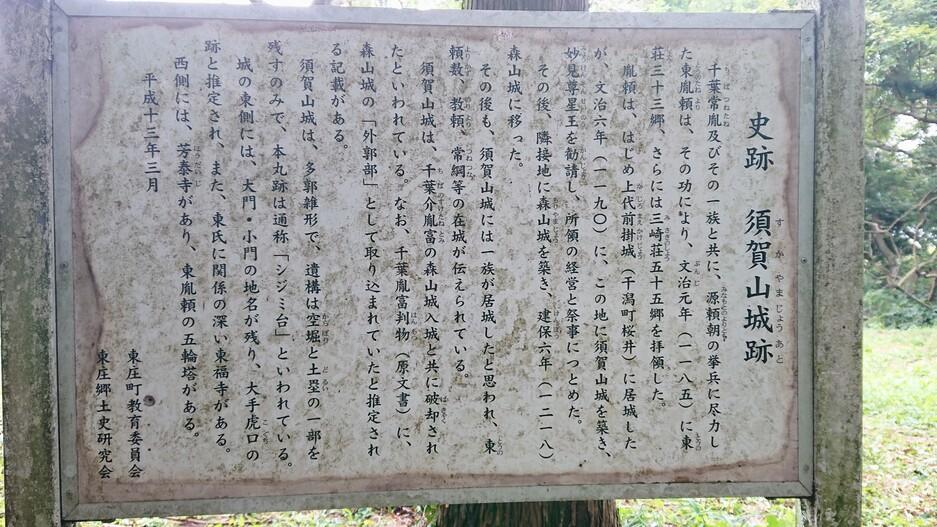 史跡 須賀山城跡
すかやまじょうあと
千葉常胤及びその一族と共に、源頼朝の挙兵に尽力し
た東胤頼は、その功により、文治元年(一一八五)に東
荘三十三郷、さらには三崎荘五十五郷を拝領した。
胤頼は、はじめ上代前掛城(干潟町桜井)に居城した
が、文治六年(一一九〇)に、この地に須賀山城を築き、
妙見尊星王を勧請し、所領の経営と祭事につとめた。
その後、隣接地に森山城を築き、建保六年(一二一八)
森山城に移った。
その後も、須賀山城には一族が居城したと思われ、東
頼数、教頼、常綱等の在城が伝えられている。
須賀山城は、千葉介胤富の森山城入城と共に破却され
たといわれている。なお、千葉胤富判物(原文書)に、
森山城の「外郭部」として取り込まれていたと推定され
る記載がある。
須賀山城は、多郭雑形で、遺構は空堀と土塁の一部を
残すのみで、本丸跡は通称「シジミ台」といわれている。
城の東側には、大門・小門の地名が残り、大手虎口の
跡と推定され、また、東氏に関係の深い東福寺がある。
西側には、芳泰寺があり、東胤頼の五輪塔がある。
平成十三年三月
東庄町教育委員会
東庄郷土史研究会